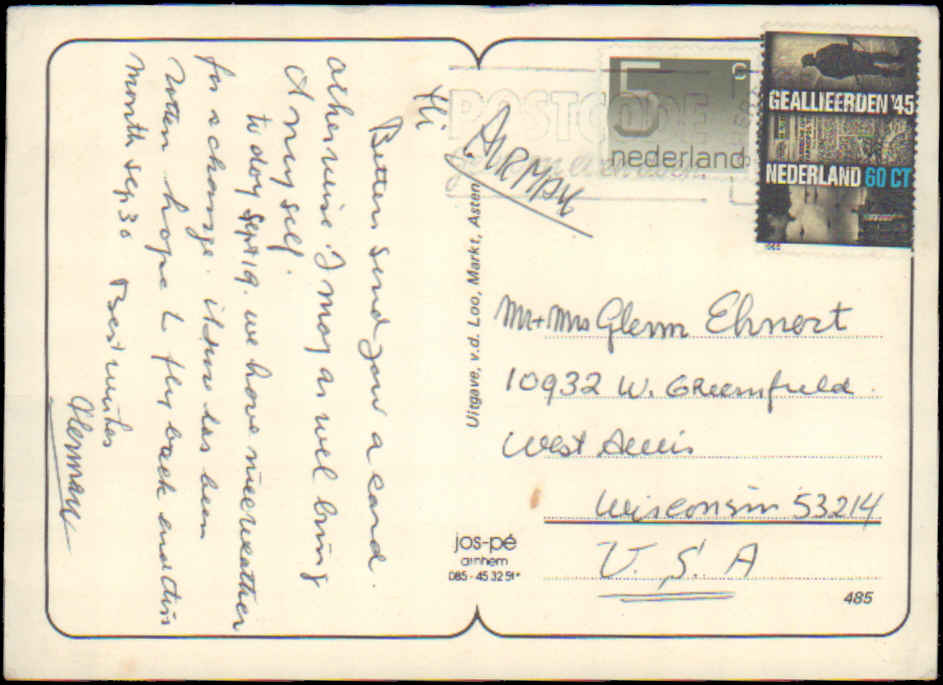 Hi
Better send you a card.
otherwise I may as wel bring
it my self.
to day Sept 19. we have nice weather
for a change. it has been
rotten hope to fly back end this
month sep 30 Best wishes
Herman
AIRMAIL
POSTCODE
5 c
nederland
GEALLIEERDEN '45
NEDERLAND 60 CT
Mr + Mrs Glenn Ehnert
10932 W. Greenfield.
West Allis
Wisconsin 53214
U. S. A
Uitgave, v.d. Loo, Markt, Asten
jos-pé
arnhem
085 - 45 32 51*
485